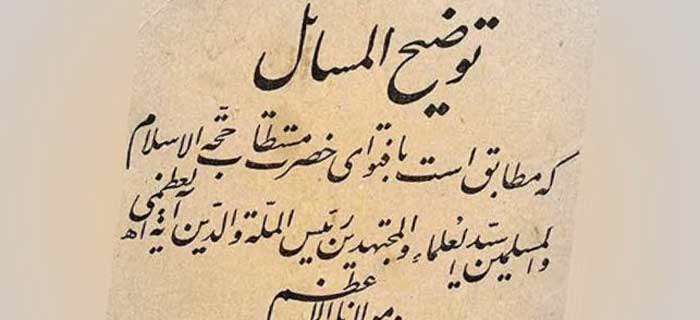 توضیح المسائل
که مطابق است بافتوای حضرت مستطاب حجّة الاسلام
والمسلمین سیّد العلماء والمجتهدین رئیس الملّة والدّین آیة الله العظمی
ومولانا الاعظم